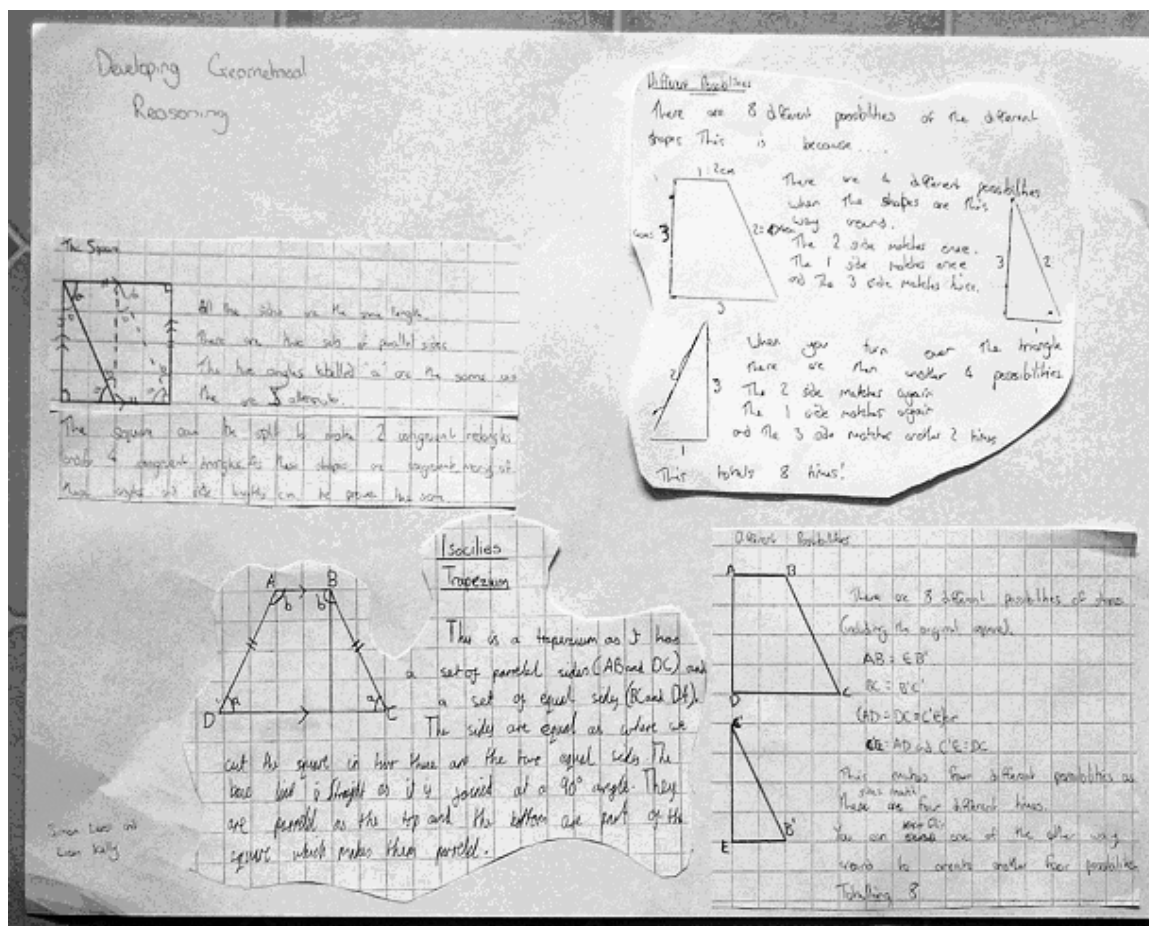 Developing Geometrical
Reasoning
The Square
All the sides are the same length.
There are two sets of parallel sides
The two angles labelled "a" are the same as
the are alternate.
The square can be split to make 2 congruent rectangles
and/or 4 congruent triangles. As these shapes are congruent many of
these angles and side lengths can be proved the same.
Different Possiblities
There are 8 different possiblities of the different
shapes This is because ....
1 2cm
3
3
There are 4 different possiblities
when the shapes are this
way round.
The 2 side matches once.
The 1 side matches once
and The 3 side matches twice.
3
2
1
2
3
1
When you turn over the triangle
there are then another 4 possiblities
The 2 side matches again
The 1 side matches again
and The 3 side matches another 2 times
This totals 8 times!
Isocilies
Trapezium
A B
b b
D a a C
This is a trapezium as it has
a set of parallel sides (AB and DC) and
a set of equal sides (BC and DA).
The sides are equal as where we
cut the square in two there are the two equal sides. The
base line is straight as it is joined at a 90° angle. They
are parallel as the top and the bottom are part of the
square which makes them parallel.
Simon and
Liam Kelly
Different Possibilities
A B
D C
E B'
There are 8 different possiblities of shapes
(including the original square).
AB = EB'
BC = B'C'
(AD = DC = C'E) or
C'E = AD and C'E = DC
This makes four different possiblities as
sides match
These are four different times.
You can one of the other way
round to create another four possiblities
Totalling 8